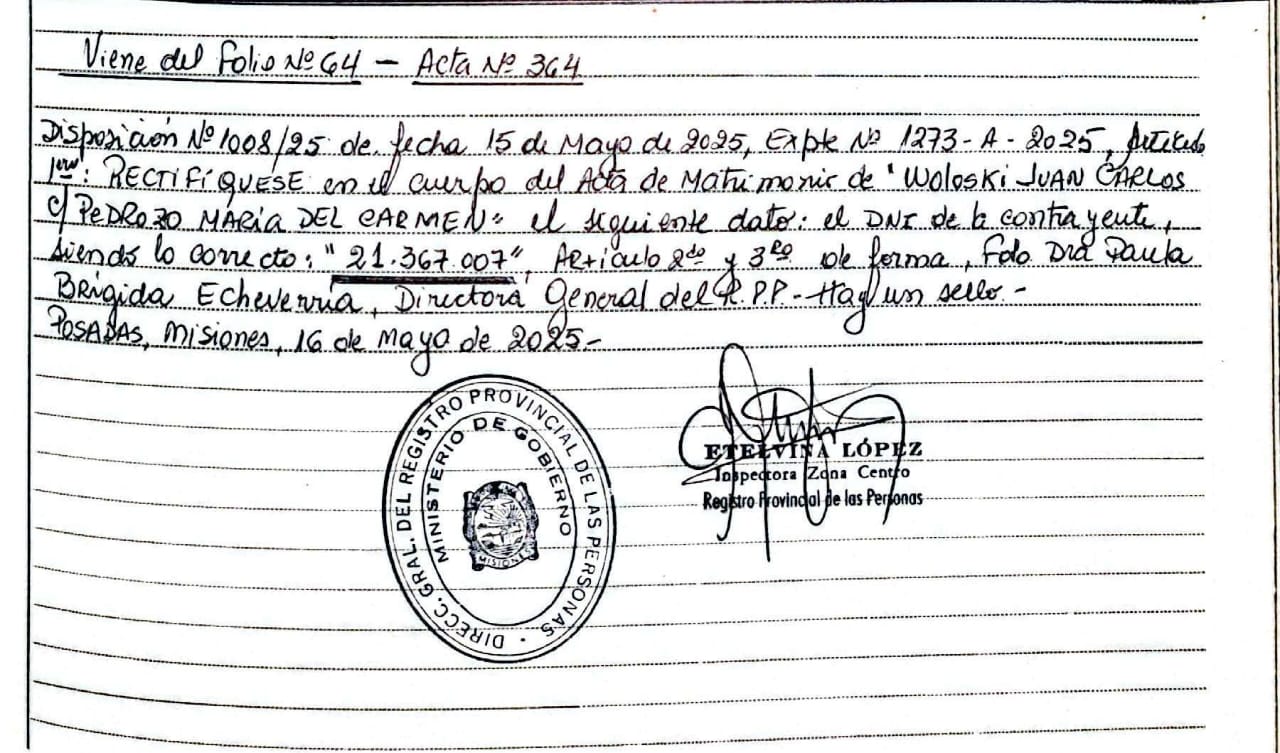 Viene del Folio Nº 64 - Acta Nº 364
Disposición Nº 1008/25 de fecha 15 de Mayo de 2025, Expte Nº 1273-A-2025, Artículo
1ero: RECTIFÍQUESE en el cuerpo del Acta de Matrimonio de "WOLOSKI JUAN CARLOS
c/ PEDROZO MARIA DEL CARMEN" el siguiente dato: el DNI de la contrayente,
siendo lo correcto: "21.367.007", Artículo 2do y 3ro de forma, Fdo. Dra Paula
Brígida Echeverría, Directora General del R.P.P - Hay un sello.-
POSADAS, Misiones, 16 de Mayo de 2025.-
DIRECC. GRAL. DEL REGISTRO PROVINCIAL DE LAS PERSONAS
MINISTERIO DE GOBIERNO
MISIONES
ETELVINA LÓPEZ
Inspectora Zona Centro
Registro Provincial de las Personas